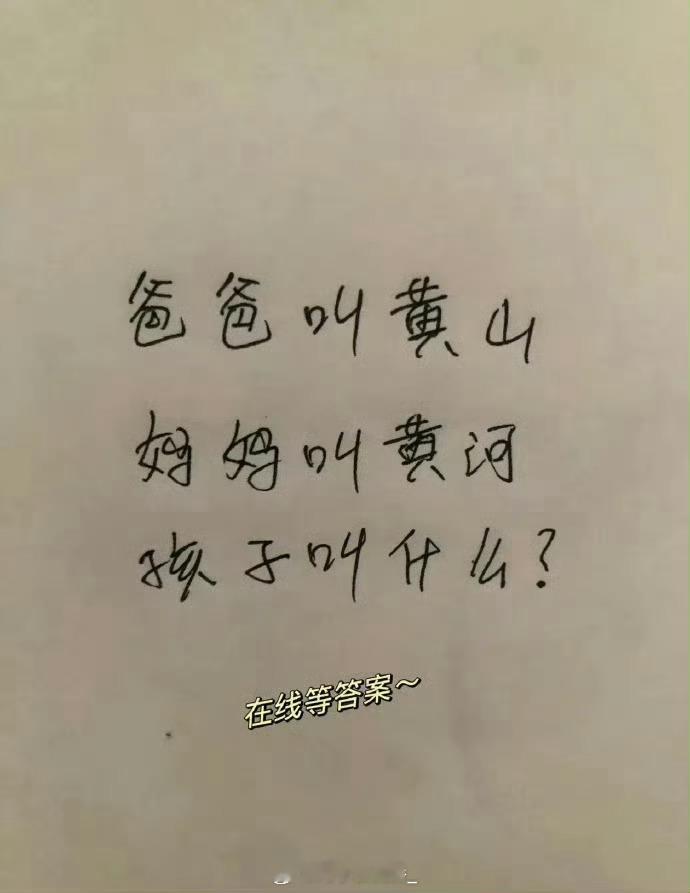 爸爸叫黄山
妈妈叫黄河
孩子叫什么?
在线等答案~